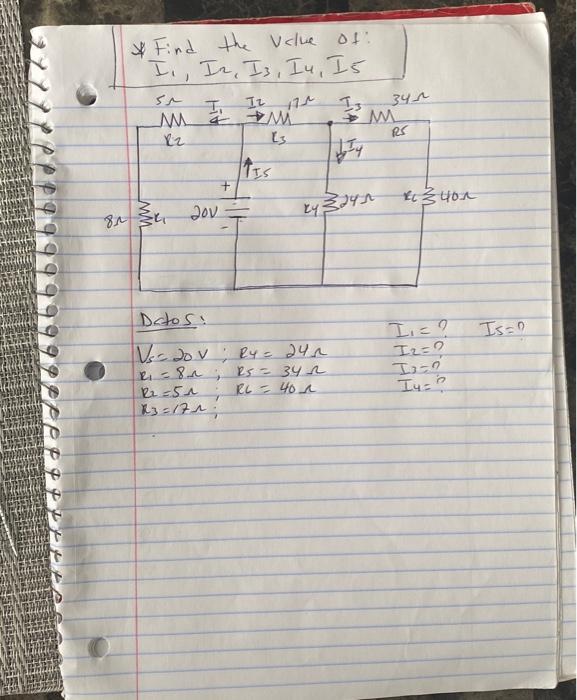 * Find the Value of:
I1, I2, I3, I4, I5
5Ω I1 I2 17Ω I3 34Ω
R2 R3 R5
I4
I5
+
8Ω R1 20V R4 24Ω R6 40Ω
-
Datos:
I1 = ? I5 = ?
Vs = 20 V ; R4 = 24Ω I2 = ?
R1 = 8Ω ; R5 = 34Ω I3 = ?
R2 = 5Ω ; R6 = 40Ω I4 = ?
R3 = 17Ω ;